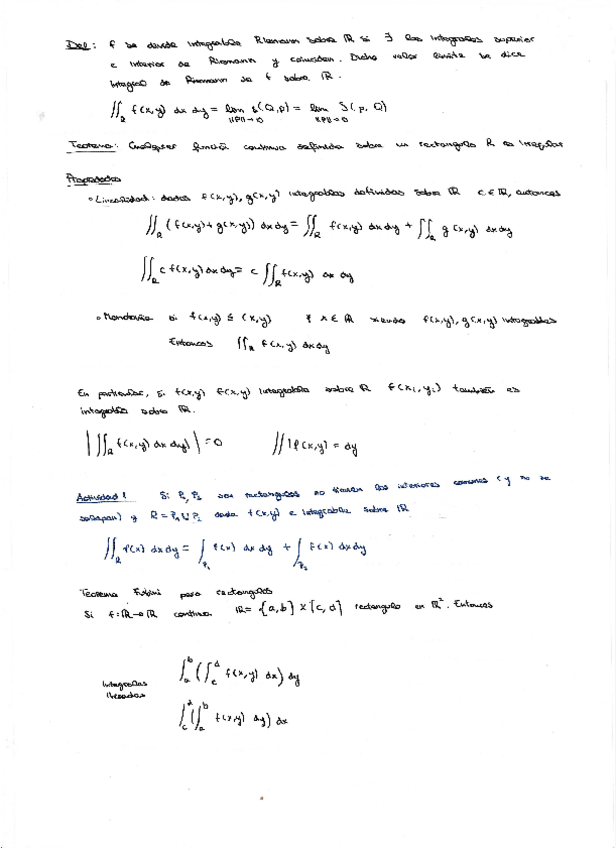 Def: f se dice integrable Riemann sobre ℝ si ∃ las integrales superior
e inferior de Riemann y coinciden. Dicho valor límite se dice
integral de Riemann de f sobre ℝ.
∬_R f(x,y) dx dy = lim s(Q,p) = lim S(p,Q)
Teorema: Cualquier función continua definida sobre un rectangulo R es
Propiedades
• Linealidad: dadas f(x,y), g(x,y) integrables definidas sobre ℝ c ∈ ℝ, entonces
∬_R (f(x,y) + g(x,y)) dx dy = ∬_R f(x,y) dx dy + ∬_R g(x,y) dx dy
∬_R c f(x,y) dx dy = c ∬_R f(x,y) dx dy
• si f(x,y) ≤ (x,y) ∈ ℝ siendo f(x,y), g(x,y) integrables
Entonces ∬_R f(x,y) dx dy
En particular, si f(x,y) f(x,y) integrable sobre ℝ f(x_i, y_i) también es
integrable sobre ℝ.
| ∬_R f(x,y) dx dy | = 0 ∬ |f(x,y)| = dy
Actividad 1 Si P₁ P₂ son rectangulos no tienen los interiores comunes (y no se
solapan) y R = P₁ ∪ P₂ dada f(x,y) e integrable sobre ℝ
∬_R f(x) dx dy = ∫_P₁ f(x) dx dy + ∫_P₂ f(x) dx dy
Teorema Fubini para rectangulos
Si f: ℝ → ℝ continua ℝ = [a,b] × [c,d] rectangulo en ℝ². Entonces
∫_a^b (∫_c^d f(x,y) dx) dy
Integrales
Iteradas
∫_c^d (∫_a^b f(x,y) dy) dx